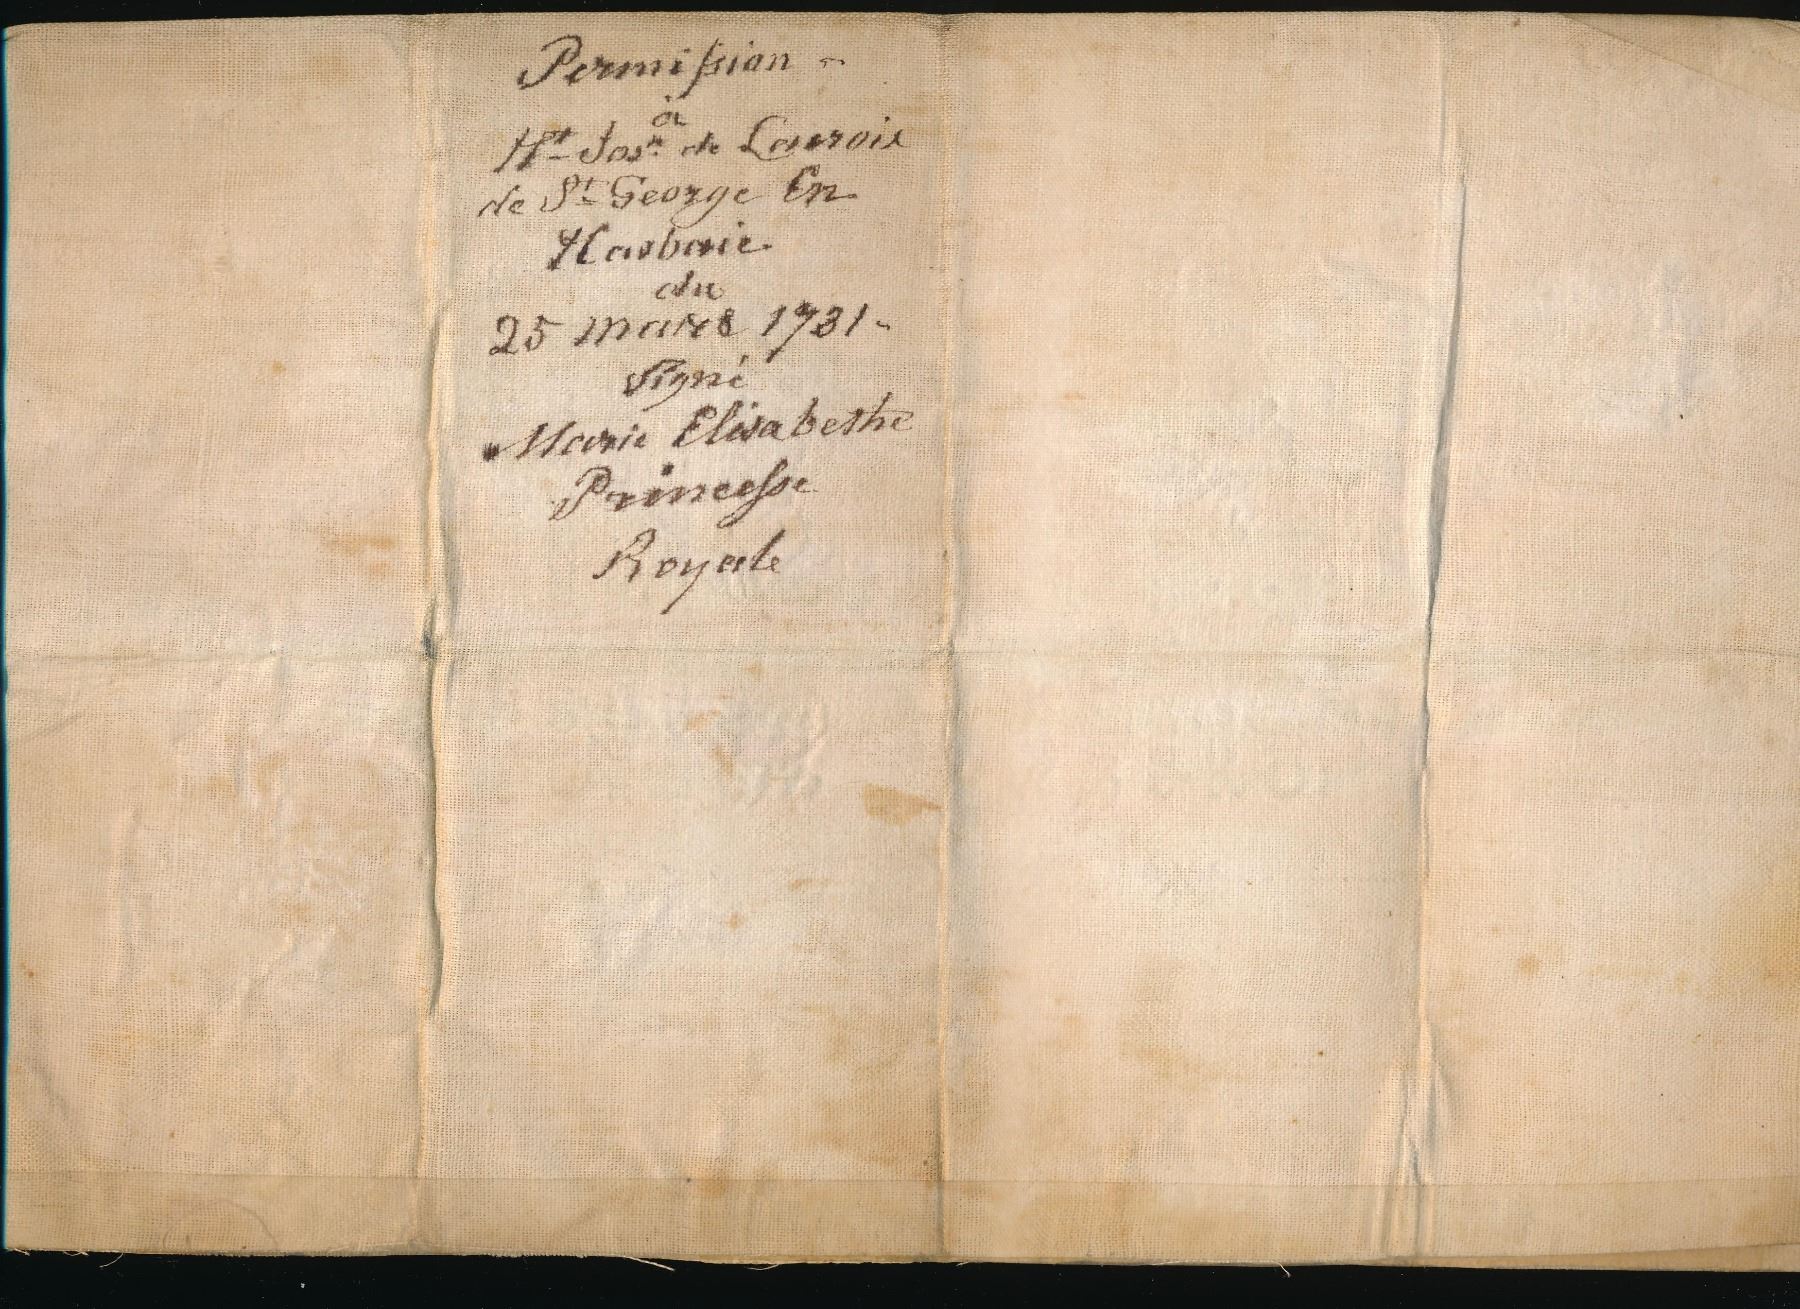 Permission -
à
Ht Josh de Lacroix
de St George En
Hasbaie
du
25 mars 1731 -
Signé
Marie Elisabethe
Princesse
Royale